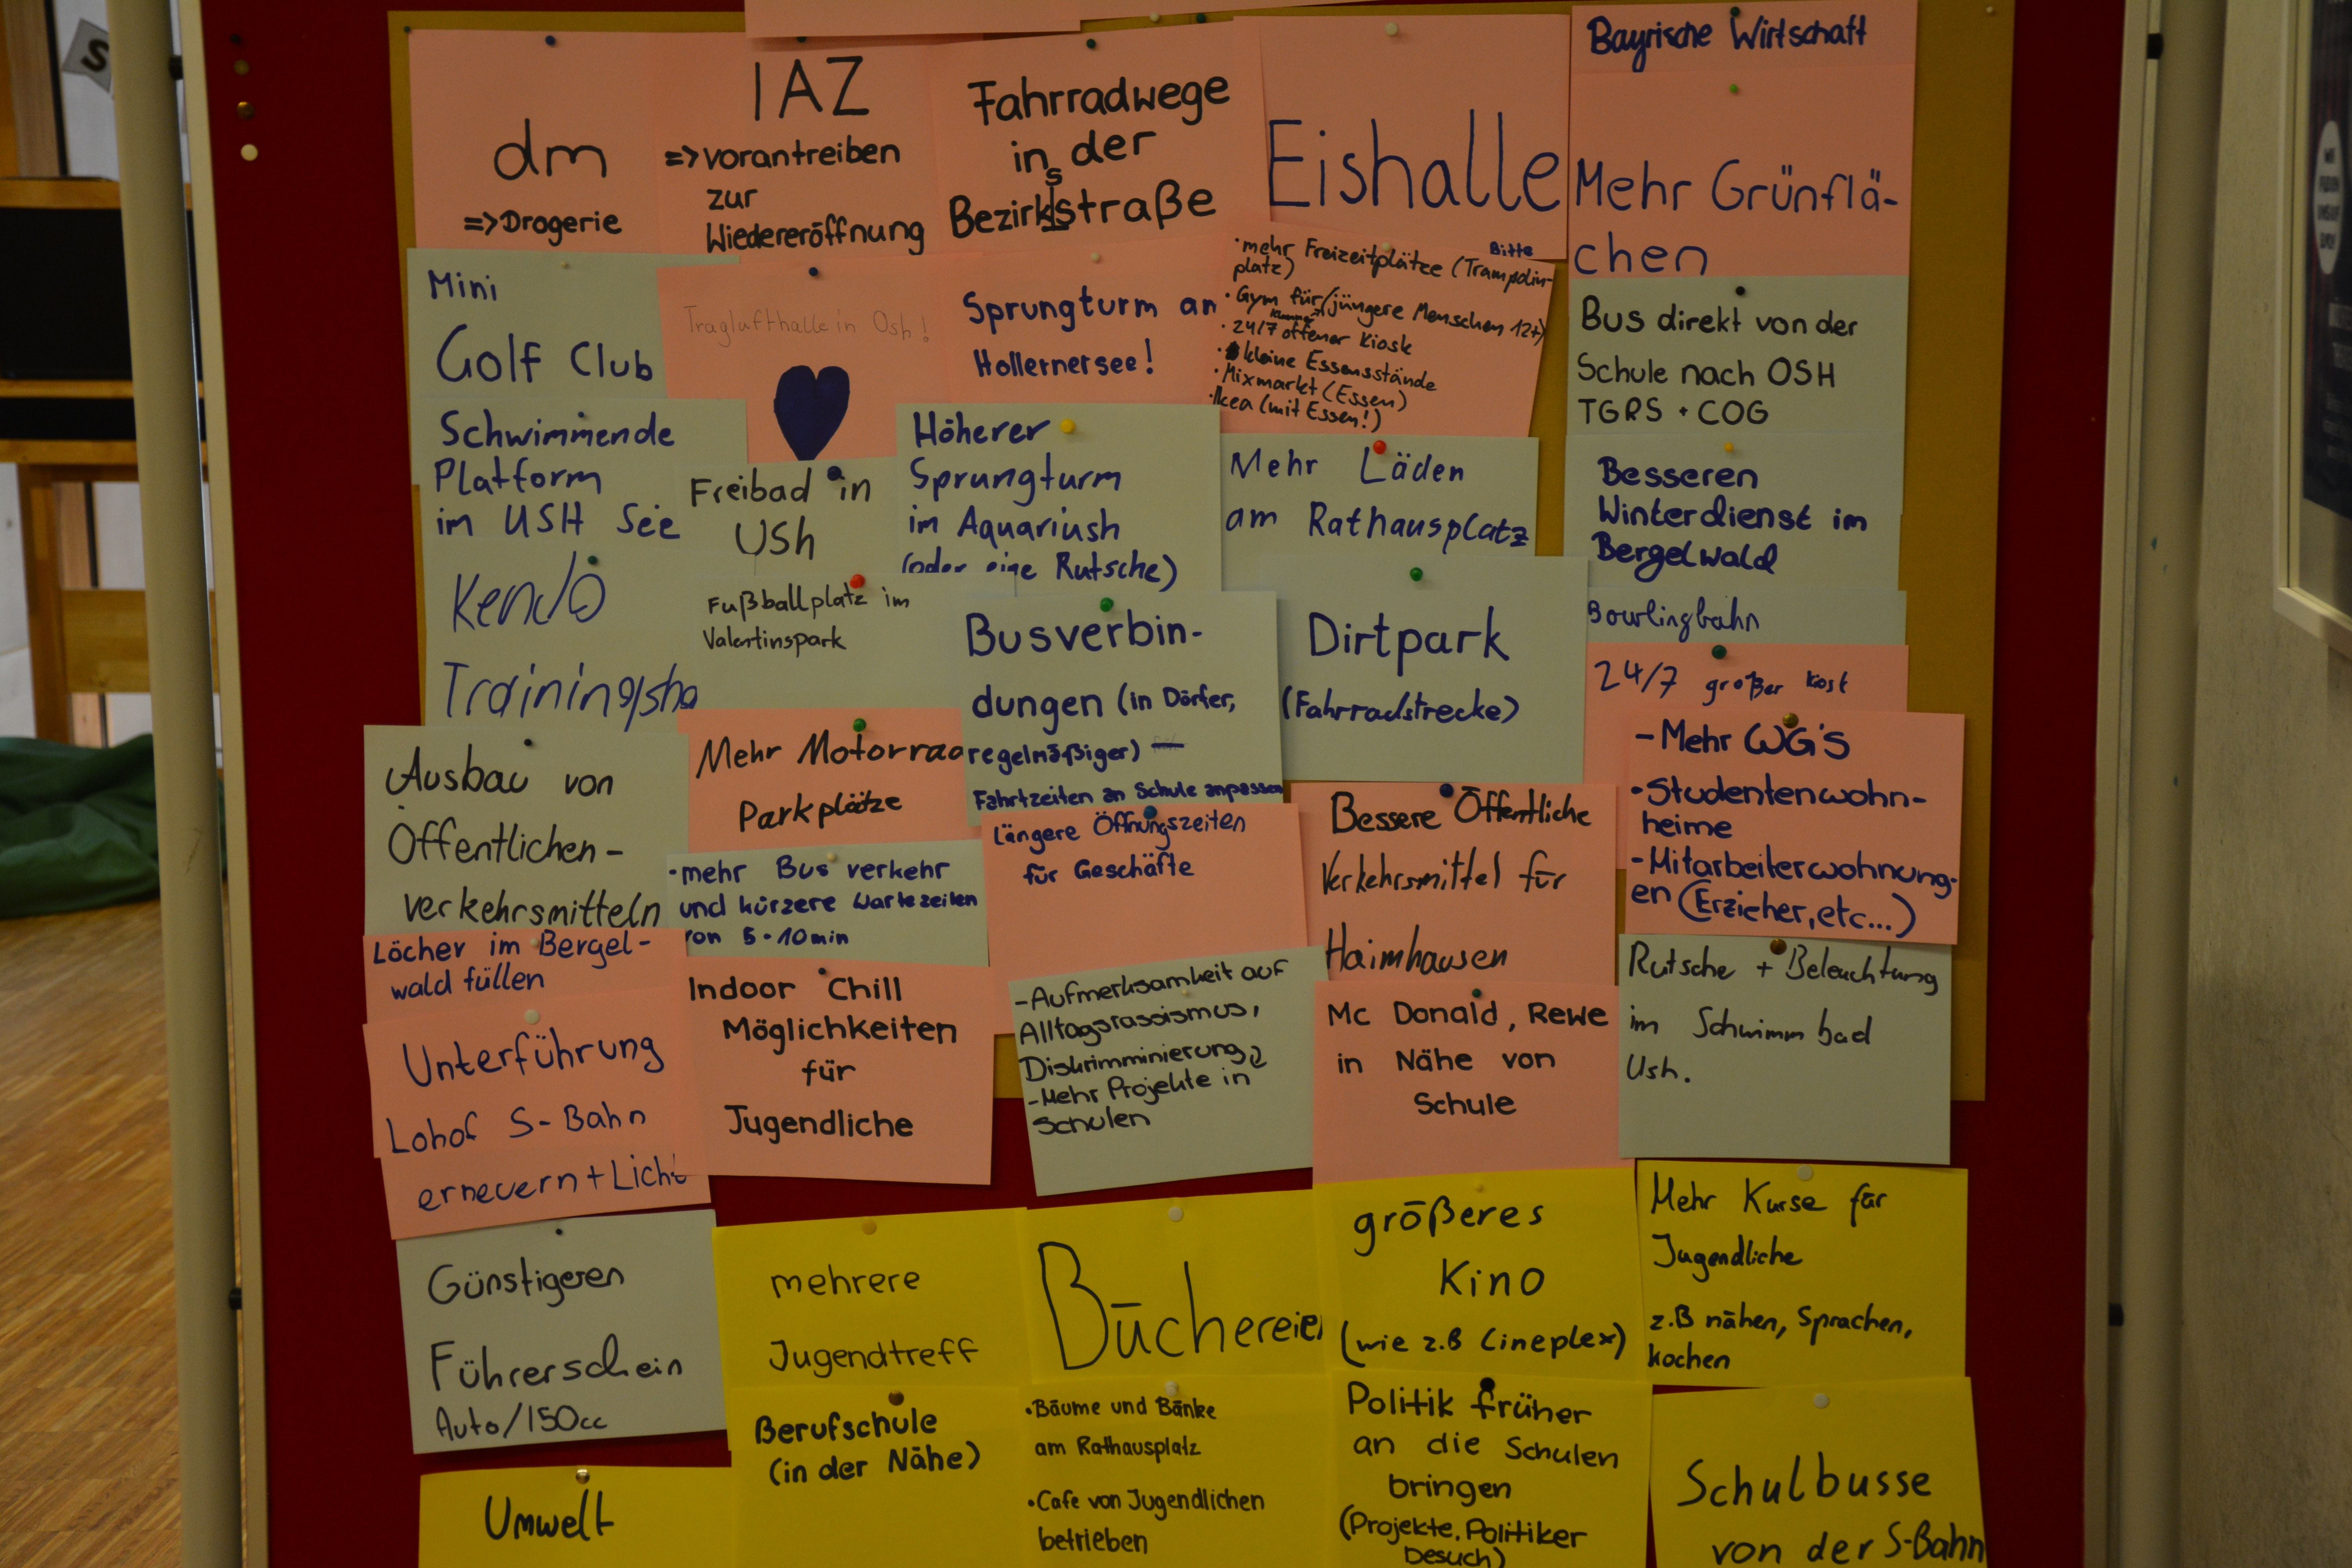 S
dm
=> Drogerie
IAZ
=> vorantreiben
zur
Wiedereröffnung
Fahrradwege
in der
s
Bezirksstraße
Eishalle
Bayrische Wirtschaft
Mehr Grünflä-
chen
Mini
Golf Club
Traglufthalle in Osh!
Sprungturm an
Hollernersee!
Bitte
• mehr Freizeitplätze (Trampolin-
platz)
• Gym für (jüngere Menschen 12+)
• 24/7 offener Kiosk
• kleine Essensstände
• Mixmarkt (Essen)
• Ikea (mit Essen!)
Bus direkt von der
Schule nach OSH
TGRS + COG
Schwimmende
Platform
im USH See
Freibad in
USh
Höherer
Sprungturm
im Aquariush
(oder eine Rutsche)
Mehr Läden
am Rathausplatz
Besseren
Winterdienst im
Bergelwald
Kendo
Trainingsha
Fußballplatz im
Valentinspark
Busverbin-
dungen (in Dörfer,
regelmäßiger)
Fahrtzeiten an Schule anpassen
Dirtpark
(Fahrradstrecke)
Bowlingbahn
24/7 großer
- Mehr WG'S
• Studentenwohn-
heime
- Mitarbeiterwohnung-
en (Erzieher, etc...)
Ausbau von
Öffentlichen-
verkehrsmitteln
Mehr Motorrad
Parkplätze
• mehr Bus verkehr
und kürzere Wartezeiten
von 5-10min
Längere Öffnungszeiten
für Geschäfte
Bessere Öffentliche
Verkehrsmittel für
Haimhausen
Löcher im Bergel-
wald füllen
Unterführung
Lohof S-Bahn
erneuern + Licht
Indoor Chill
Möglichkeiten
für
Jugendliche
- Aufmerksamkeit auf
Alltagsrassismus,
Diskrimminierung
- Mehr Projekte in
Schulen
Mc Donald, Rewe
in Nähe von
Schule
Rutsche + Beleuchtung
im Schwimmbad
Ush.
Günstigeren
Führerschein
Auto/150cc
mehrere
Jugendtreff
Büchereien
größeres
Kino
(wie z.B Cineplex)
Mehr Kurse für
Jugendliche
z.B nähen, Sprachen,
kochen
Umwelt
Berufschule
(in der Nähe)
• Bäume und Bänke
am Rathausplatz
• Cafe von Jugendlichen
betrieben
Politik früher
an die Schulen
bringen
(Projekte, Politiker
besuch)
Schulbusse
von der S-Bahn